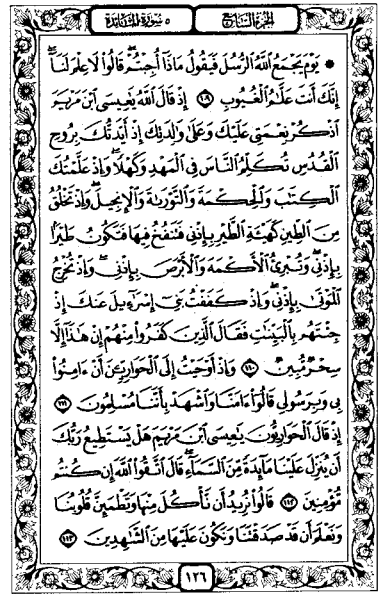 الجزء السابع ٥ سورة المائدة
يَوْمَ يَجْمَعُ اللَّهُ الرُّسُلَ فَيَقُولُ مَاذَا أُجِبْتُمْ قَالُوا لَا عِلْمَ لَنَا
إِنَّكَ أَنتَ عَلَّامُ الْغُيُوبِ ١٠٩ إِذْ قَالَ اللَّهُ يَٰعِيسَى ابْنَ مَرْيَمَ
اذْكُرْ نِعْمَتِي عَلَيْكَ وَعَلَىٰ وَٰلِدَتِكَ إِذْ أَيَّدتُّكَ بِرُوحِ
الْقُدُسِ تُكَلِّمُ النَّاسَ فِي الْمَهْدِ وَكَهْلًا وَإِذْ عَلَّمْتُكَ
الْكِتَٰبَ وَالْحِكْمَةَ وَالتَّوْرَىٰةَ وَالْإِنجِيلَ وَإِذْ تَخْلُقُ
مِنَ الطِّينِ كَهَيْـَٔةِ الطَّيْرِ بِإِذْنِي فَتَنفُخُ فِيهَا فَتَكُونُ طَيْرًا
بِإِذْنِي وَتُبْرِئُ الْأَكْمَهَ وَالْأَبْرَصَ بِإِذْنِي وَإِذْ تُخْرِجُ
الْمَوْتَىٰ بِإِذْنِي وَإِذْ كَفَفْتُ بَنِي إِسْرَٰٓءِيلَ عَنكَ إِذْ
جِئْتَهُم بِالْبَيِّنَٰتِ فَقَالَ الَّذِينَ كَفَرُوا مِنْهُمْ إِنْ هَٰذَا إِلَّا
سِحْرٌ مُّبِينٌ ١١٠ وَإِذْ أَوْحَيْتُ إِلَى الْحَوَارِيِّينَ أَنْ ءَامِنُوا
بِي وَبِرَسُولِي قَالُوا ءَامَنَّا وَاشْهَدْ بِأَنَّنَا مُسْلِمُونَ ١١١
إِذْ قَالَ الْحَوَارِيُّونَ يَٰعِيسَى ابْنَ مَرْيَمَ هَلْ يَسْتَطِيعُ رَبُّكَ
أَن يُنَزِّلَ عَلَيْنَا مَائِدَةً مِّنَ السَّمَاءِ قَالَ اتَّقُوا اللَّهَ إِن كُنتُم
مُّؤْمِنِينَ ١١٢ قَالُوا نُرِيدُ أَن نَّأْكُلَ مِنْهَا وَتَطْمَئِنَّ قُلُوبُنَا
وَنَعْلَمَ أَن قَدْ صَدَقْتَنَا وَنَكُونَ عَلَيْهَا مِنَ الشَّٰهِدِينَ ١١٣
١٢٦